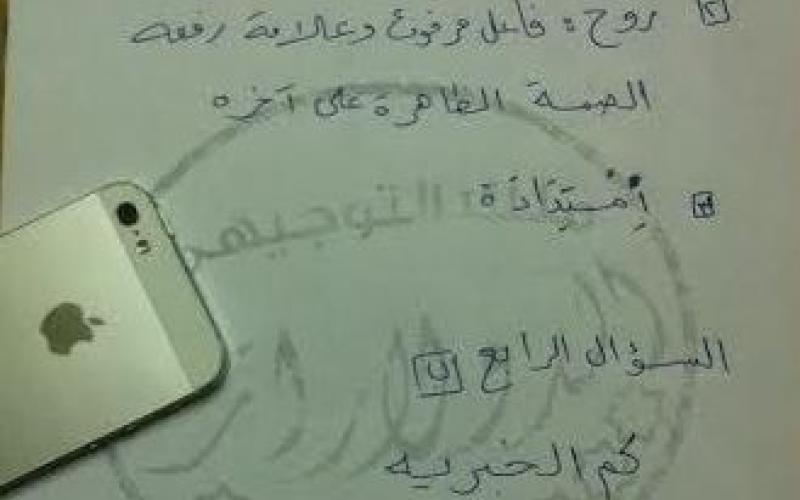 [٢] روح : فاعل مرفوع وعلامة رفعه
الضمة الظاهرة على آخره
[٣] اِمْتِدَادَة
السؤال الرابع [ب]
كم الخبريه
التوجيهي